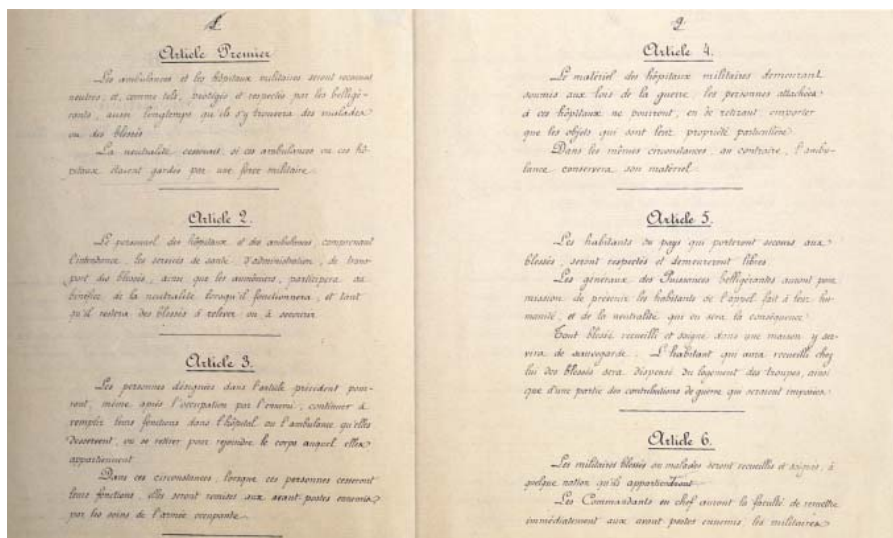 1
Article Premier
Les ambulances et les hôpitaux militaires seront reconnus
neutres, et, comme tels, protégés et respectés par les belligé-
rants, aussi longtemps qu'il s'y trouvera des malades
ou des blessés.
La neutralité cesserait, si ces ambulances ou ces hô-
pitaux étaient gardés par une force militaire.
Article 2.
Le personnel des hôpitaux et des ambulances, comprenant
l'intendance, les services de santé, d'administration, de trans-
port des blessés, ainsi que les aumôniers, participera au
bénéfice de la neutralité lorsqu'il fonctionnera, et tant
qu'il restera des blessés à relever ou à secourir.
Article 3.
Les personnes désignées dans l'article précédent pour-
ront, même après l'occupation par l'ennemi, continuer à
remplir leurs fonctions dans l'hôpital ou l'ambulance qu'elles
desservent, ou se retirer pour rejoindre le corps auquel elles
appartiennent.
Dans ces circonstances, lorsque ces personnes cesseront
leurs fonctions, elles seront remises aux avant-postes ennemis,
par les soins de l'armée occupante.
2
Article 4.
Le matériel des hôpitaux militaires demeurant
soumis aux lois de la guerre, les personnes attachées
à ces hôpitaux ne pourront, en se retirant, emporter
que les objets qui sont leur propriété particulière.
Dans les mêmes circonstances, au contraire, l'ambu-
lance conservera son matériel.
Article 5.
Les habitants du pays qui porteront secours aux
blessés, seront respectés et demeureront libres.
Les généraux des Puissances belligérantes auront pour
mission de prévenir les habitants de l'appel fait à leur hu-
manité, et de la neutralité qui en sera la conséquence.
Tout blessé recueilli et soigné dans une maison y ser-
vira de sauvegarde. L'habitant qui aura recueilli chez
lui des blessés sera dispensé du logement des troupes, ainsi
que d'une partie des contributions de guerre qui seraient imposées.
Article 6.
Les militaires blessés ou malades seront recueillis et soignés, à
quelque nation qu'ils appartiendront.
Les Commandants en chef auront la faculté de remettre
immédiatement aux avant-postes ennemis, les militaires